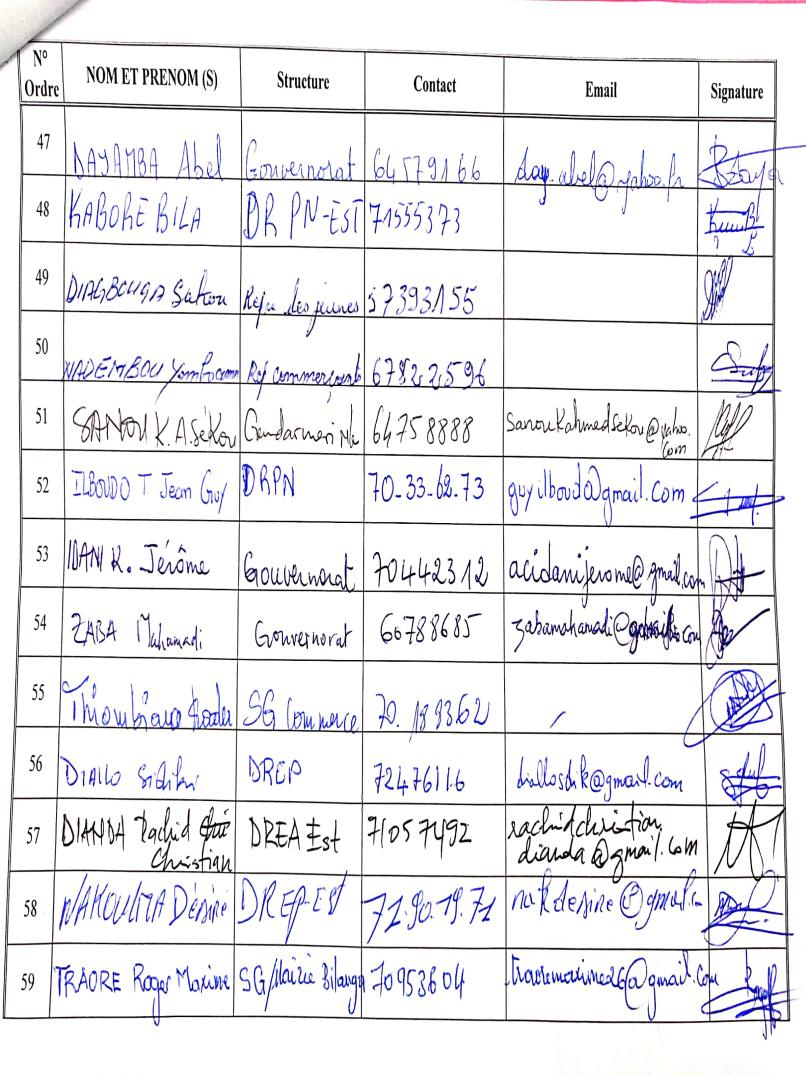 N° Ordre NOM ET PRENOM (S) Structure Contact Email Signature
47 DAYAMBA Abel Gouvernorat 64579166 day.abel@yahoo.fr
48 KABORE BILA DR PN-EST 71555373
49 DIAGBOUGA Repr des jeunes 57393155
50 Rep commerçants 67822596
51 SANOU K.A. Sékou Gendarmerie 64758888 Sanoukahmedsekou@yahoo.com
52 ILBOUDO T Jean Guy DRPN 70-33-62-73 guyilboud@gmail.com
53 IDANI K. Jérôme Gouvernorat 70442312 acidanijerome@gmail.com
54 ZABA Mahamadi Gouvernorat 66788685
55 Thiombiano SG Commerce 70.189362
56 DIALLO Sidiki DREP 72476116
57 DIANDA Rachid Christian DREA Est 71057492 rachidchristian
dianda@gmail.com
58 NAKOULMA Désiré DREP-EST 71.90.19.71
59 TRAORE Roger Maxime SG/Mairie Bilanga 70953604 traoremaxime26@gmail.com